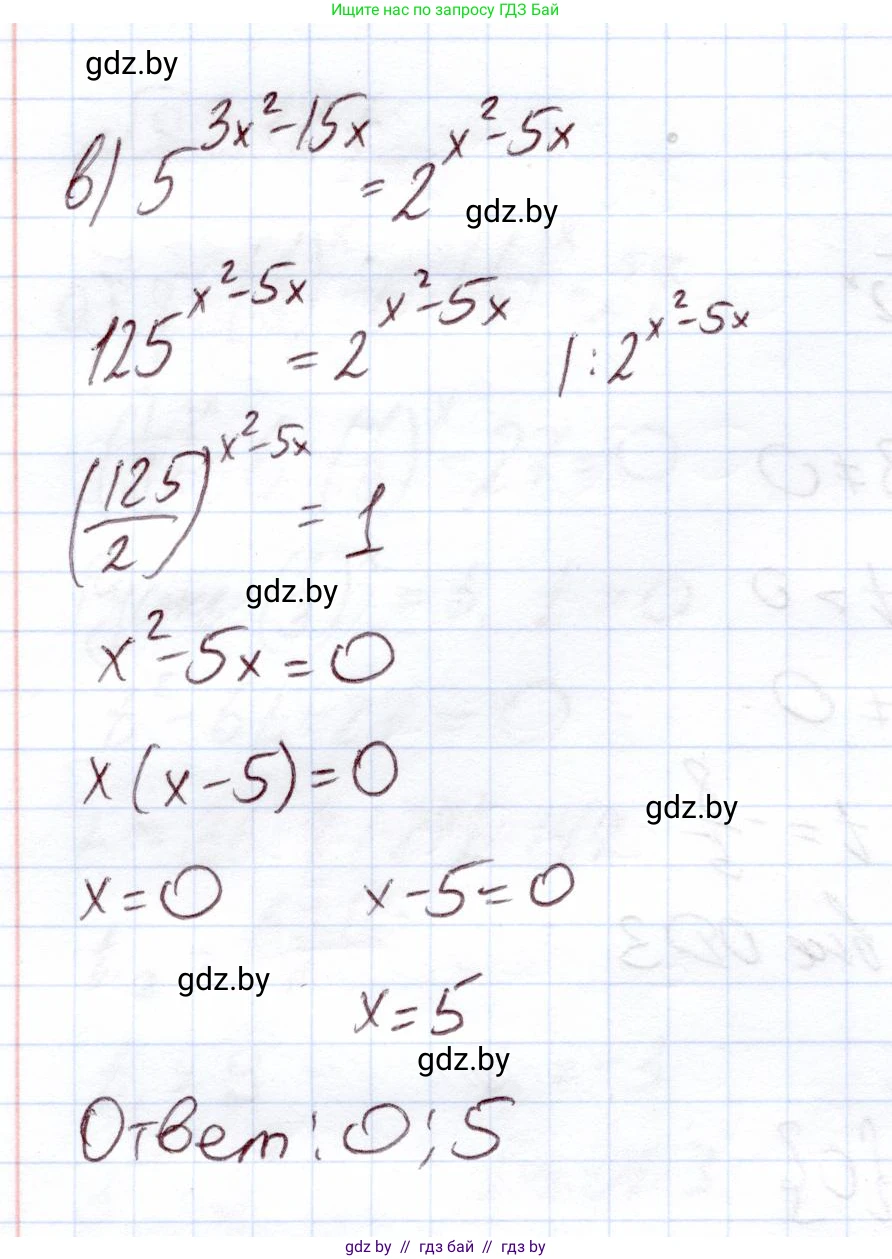 Ищите нас по запросу ГДЗ Бай
gdz.by
в) 5^(3x²-15x) = 2^(x²-5x)
gdz.by
125^(x²-5x) = 2^(x²-5x) |:2^(x²-5x)
(125/2)^(x²-5x) = 1
gdz.by
x²-5x=0
x(x-5)=0
gdz.by
x=0 x-5=0
gdz.by
x=5
gdz.by
Ответ: 0; 5
gdz.by // гдз бай // гдз by